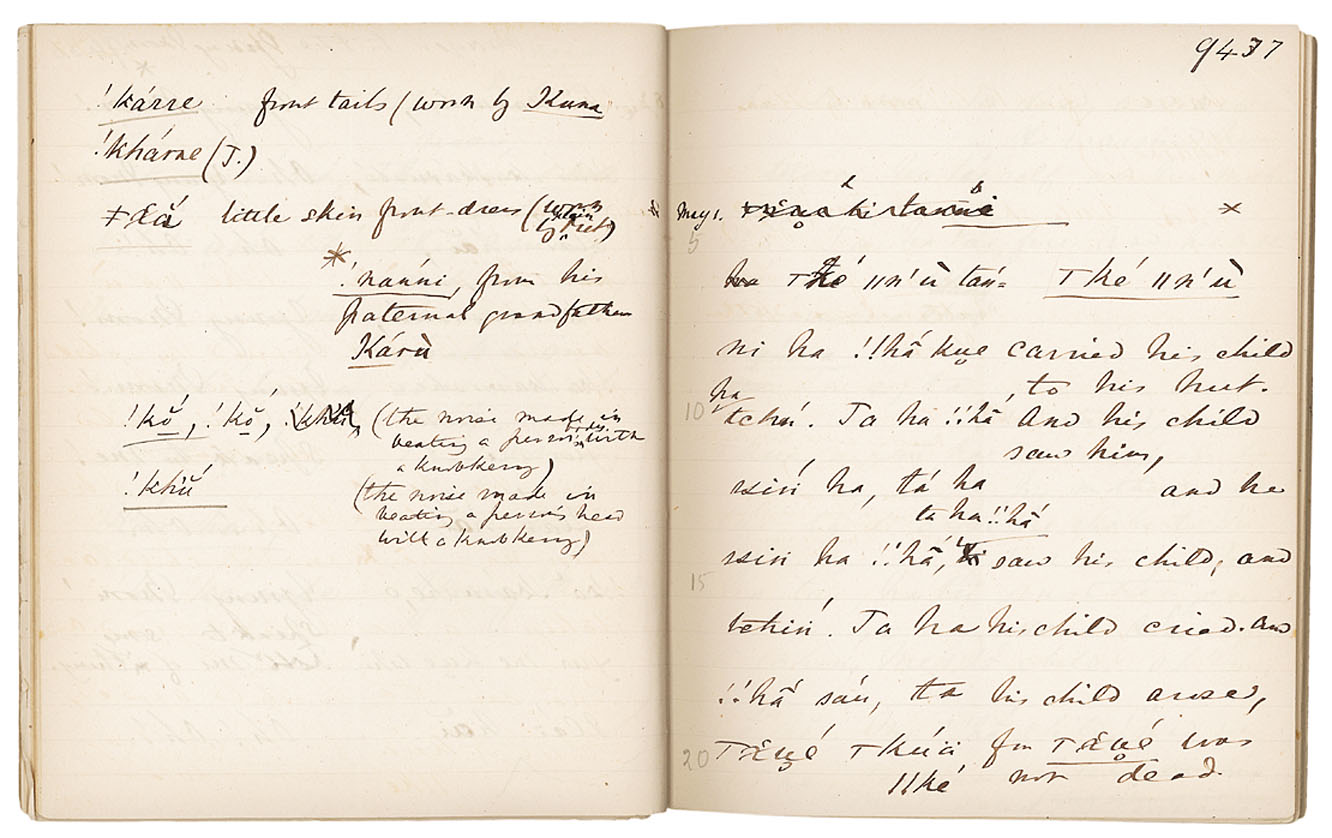 !kárre front tails (worn by Kuna
!khárne (T.)
ǂẋắ little skin front-dress (worn
by
*
!nanni, from his
paternal grandfather
Káru
!kŏ́, !kŏ́, (the noise made in
beating a person's body with
a knobkerry)
!khŭ́ (the noise made in
beating a person's head
with a knobkerry)
9437
May 1. *
5
ǁn'ù tán= Tké ǁn'ù
ni ha !!hā́ kụe carried his child
ha , to his hut.
10 tchú. Ta ha !!hā́ And his child
saw him,
ssiń ha, tá ha and he
ta ha !!hā́
ssin ha !!hā́, saw his child, and
15
tchiń. Ta ha his child cried. and
!!hā́ sáu, ta his child arose,
20 Tẋụé Tkúa, for Tẋụé was
ǁké not dead.